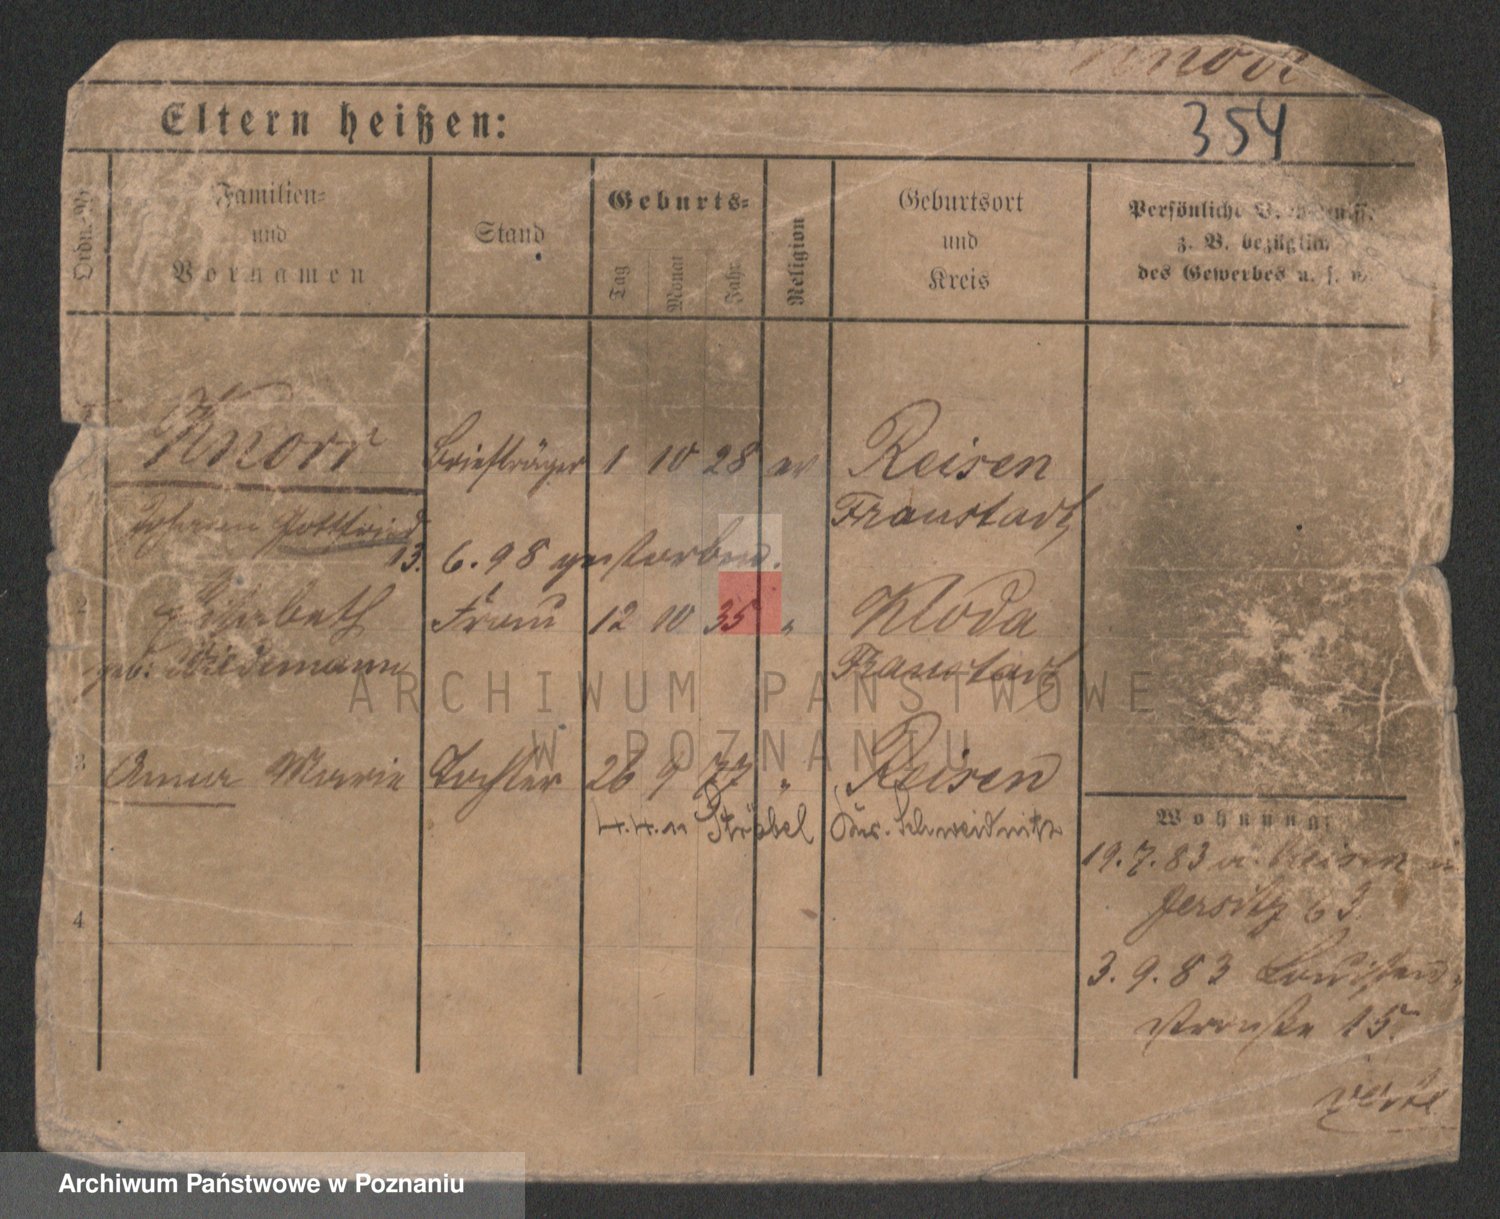 Knorr
354
Eltern heißen:
Ordn.-Nr.
Familien-
und
Vornamen
Stand
Geburts-
Tag
Monat
Jahr
Religion
Geburtsort
und
Kreis
Persönliche
z. B. bezüglich
des Gewerbes u. s. w.
Knorr Briefträger 1 10 28 ev Reisen
Johann Gottfried Fraustadt
13. 6. 98 gestorben.
2 Elisabeth Frau 12 10 35 " Kloda
geb: Wiedemann Fraustadt
3 Anna Marie Tochter 26 9 77 " Reisen
4.4.11 Ströbel Krs. Schweidnitz
4
Wohnung:
19.7.83 a. Reisen n
Jersitz 63
3.9.83 Louisen
straße 15.
verte
ARCHIWUM PAŃSTWOWE
W POZNANIU
Archiwum Państwowe w Poznaniu